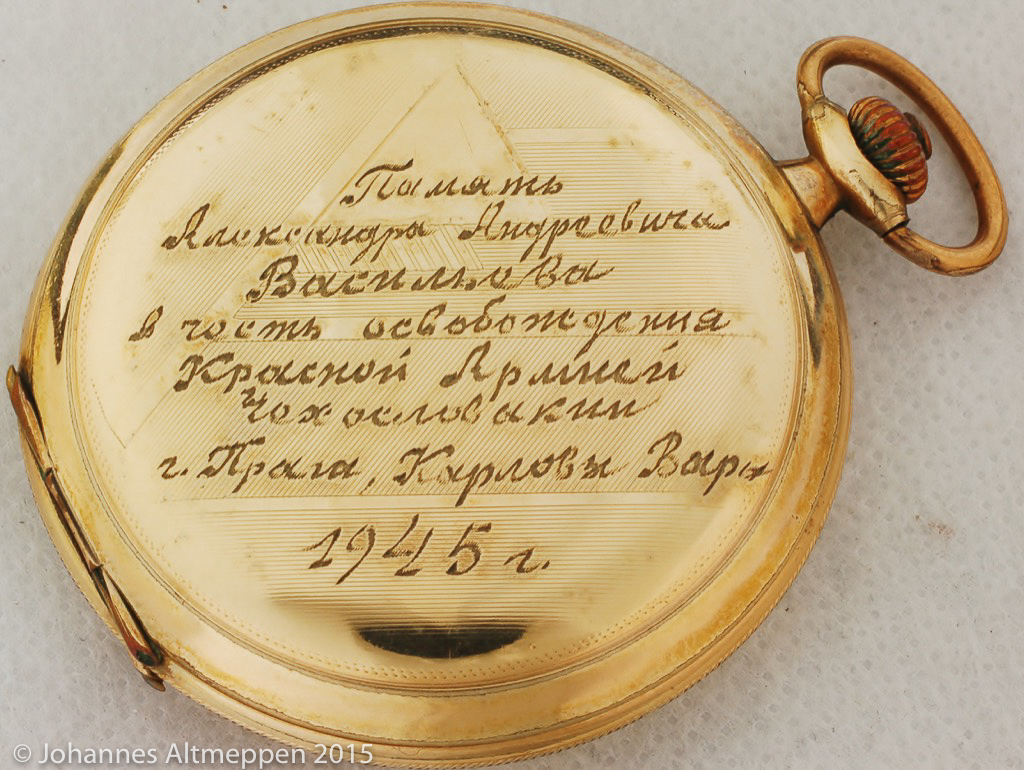 Память
Александра Андреевича
Васильева
в честь освобождения
Красной Армией
Чехословакии
г. Прага, Карловы Вары
1945 г.
© Johannes Altmeppen 2015